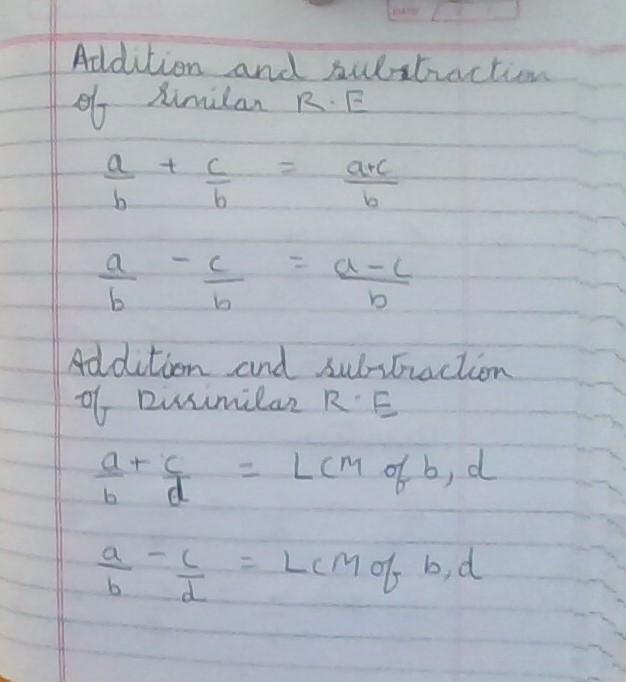 DATE
Addition and substraction
of similar R.E
a/b + c/b = a+c/b
a/b - c/b = a-c/b
Addition and substraction
of Dissimilar R.E
a/b + c/d = LCM of b, d
a/b - c/d = LCM of b, d